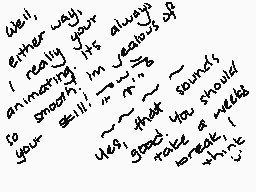 Well,
either way,
I really your always
animating. Its
smooth! im jealous of
so
your skill!
~ ~ ~ ~
Yes, that sounds
good. You should
take a weeks
break, I
think